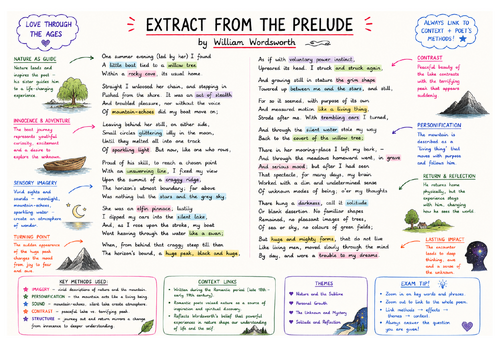 LOVE THROUGH
THE AGES
EXTRACT FROM THE PRELUDE
by William Wordsworth
ALWAYS LINK TO
CONTEXT + POET'S
METHODS!
NATURE AS GUIDE
Nature leads and
inspires the poet -
his sister guides him
to a life-changing
experience.
INNOCENCE & ADVENTURE
The boat journey
represents youthful
curiosity, excitement
and a desire to
explore the unknown.
SENSORY IMAGERY
Vivid sights and
sounds - moonlight,
mountain-echoes,
sparkling water -
create an atmosphere
of wonder.
TURNING POINT
The sudden appearance
of the huge peak
changes the mood
from joy to fear
and awe.
One summer evening (led by her) I found
A little boat tied to a willow tree
Within a rocky cove, its usual home.
Straight I unloosed her chain, and stepping in
Pushed from the shore. It was an act of stealth
And troubled pleasure, nor without the voice
Of mountain-echoes did my boat move on;
Leaving behind her still, on either side,
Small circles glittering idly in the moon,
Until they melted all into one track
Of sparkling light. But now, like one who rows,
Proud of his skill, to reach a chosen point
With an unswerving line, I fixed my view
Upon the summit of a craggy ridge,
The horizon's utmost boundary; far above
Was nothing but the stars and the grey sky.
She was an elfin pinnace; lustily
I dipped my oars into the silent lake,
And, as I rose upon the stroke, my boat
Went heaving through the water like a swan;
When, from behind that craggy steep till then
The horizon's bound, a huge peak, black and huge,
As if with voluntary power instinct,
Upreared its head. I struck and struck again,
And growing still in stature the grim shape
Towered up between me and the stars, and still,
For so it seemed, with purpose of its own
And measured motion like a living thing,
Strode after me. With trembling oars I turned,
And through the silent water stole my way
Back to the covert of the willow tree;
There in her mooring-place I left my bark, -
And through the meadows homeward went, in grave
And serious mood; but after I had seen
That spectacle, for many days, my brain
Worked with a dim and undetermined sense
Of unknown modes of being; o'er my thoughts
There hung a darkness, call it solitude
Or blank desertion. No familiar shapes
Remained, no pleasant images of trees,
Of sea or sky, no colours of green fields;
But huge and mighty forms, that do not live
Like living men, moved slowly through the mind
By day, and were a trouble to my dreams.
CONTRAST
Peaceful beauty of
the lake contrasts
with the terrifying
peak that appears
suddenly.
PERSONIFICATION
The mountain is
described as
a 'living thing'
that moves with
purpose and
follows him.
RETURN & REFLECTION
He returns home
physically, but the
experience stays
with him, changing
how he sees the world.
LASTING IMPACT
The encounter
leads to deep
thinking, awe
and a sense of
the unknown.
KEY METHODS USED:
IMAGERY - vivid descriptions of nature and the mountain.
PERSONIFICATION - the mountain acts like a living being
SOUND - mountain-echoes, silent lake create atmosphere.
CONTRAST - peaceful lake vs. terrifying peak.
STRUCTURE - journey out and return mirrors a change
from innocence to deeper understanding.
CONTEXT LINKS
Written during the Romantic period (late 18th -
early 19th century).
Romantic poets valued nature as a source of
inspiration and spiritual discovery.
Reflects Wordsworth's belief that powerful
experiences in nature shape our understanding
of life and the self
THEMES
Nature and the Sublime
Personal Growth
The Unknown and Mystery
Solitude and Reflection
EXAM TIP!
Zoom in on key words and phrases.
Zoom out to link to the whole poem.
Link methods → effects →
themes → context.
Always answer the question
you are given!